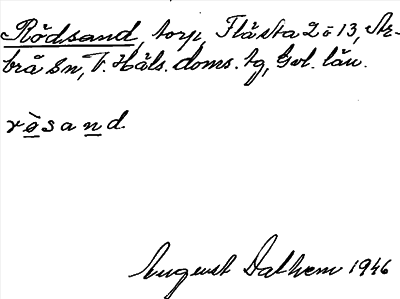 Rödsand, torp, Flästa 2 o 13, Ar-
brå sn, V. Häls. doms. tg, Gvl. län.
rösand
August Dalhem 1946